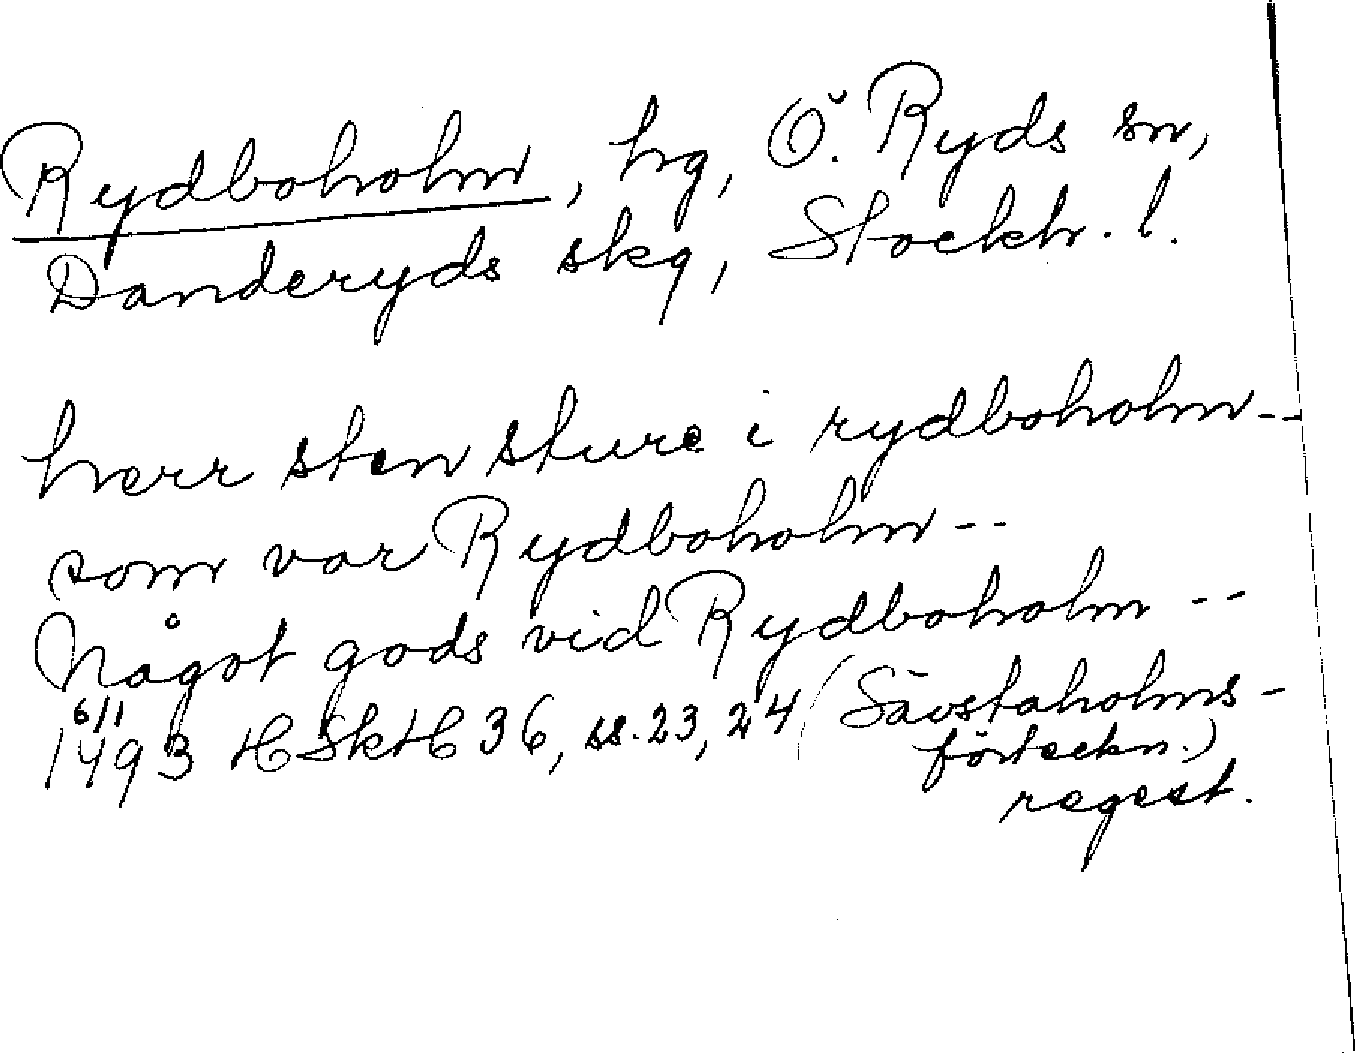 Rydboholm, hg, Ö. Ryds sn,
Danderyds skg, Stockh. l.
herr sten sture i rydboholm--
som var Rydboholm--
Något gods vid Rydboholm --
6/1
1493 HSkH 36, ss. 23, 24 (Sävstaholms-
förteckn.)
regest.